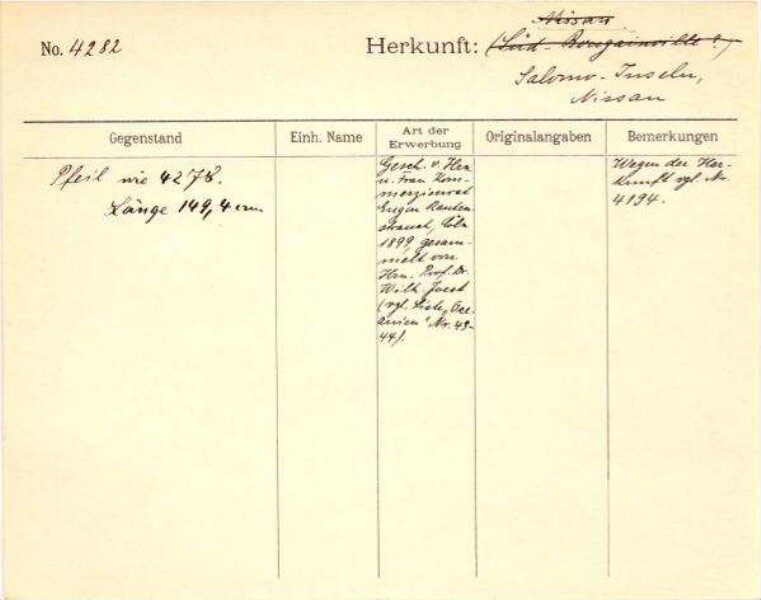 No. 4282
Herkunft: Nissan
(Süd-Bougainville?)
Salomo-Inseln,
Nissan
Gegenstand
Einh. Name
Art der
Erwerbung
Originalangaben
Bemerkungen
Pfeil wie 4278.
Länge 149,4 cm.
Gesch. v. Hrn
u. Frau Kom-
merzienrat
Eugen Rauten-
strauch, Cöln
1899, gesam-
melt von
Hrn. Prof. Dr.
Wilh. Joest
(vgl. Liste „Oce-
anien" Nr. 43-
44).
Wegen der Her-
kunft vgl. Nr.
4194.